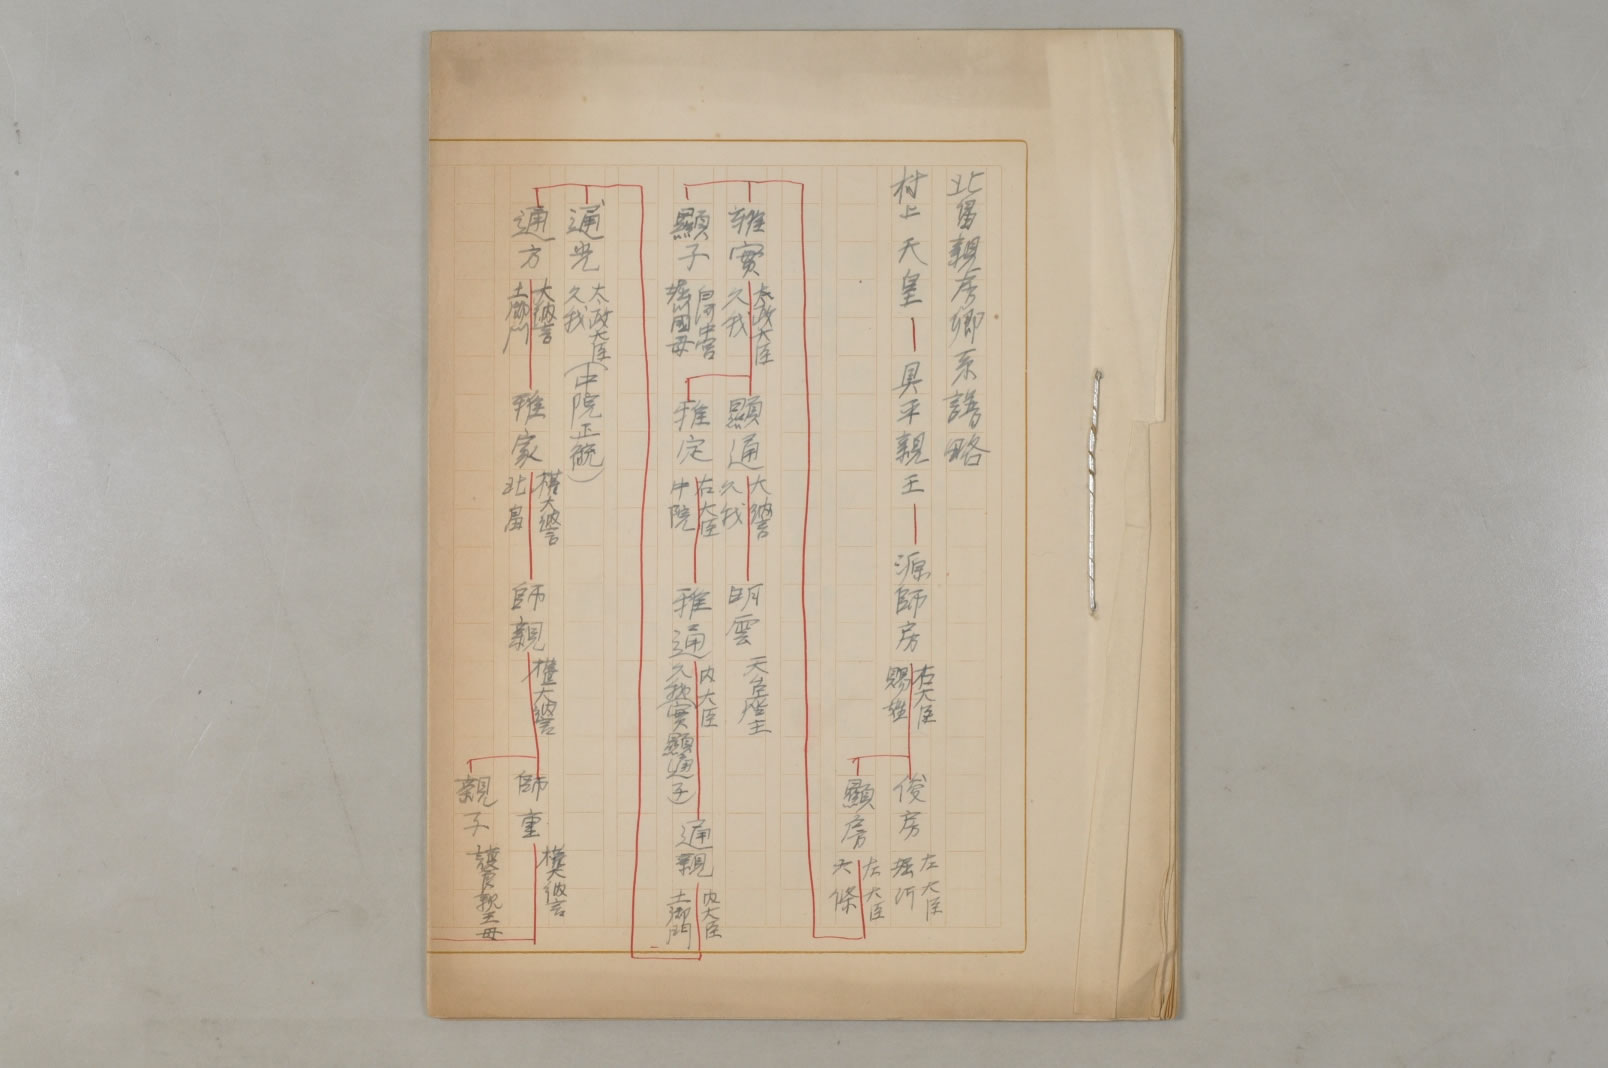 北畠親房卿系譜略
村上天皇―具平親王―源師房 右大臣 賜姓
俊房 左大臣 堀河
顯房 右大臣 六條
雅實 太政大臣 久我
顯子 白河中宮 堀川國母
顯通 大納言 久我
明雲 天台座主
雅定 右大臣 中院
雅通 内大臣 久我(實顯通子)
通親 内大臣 土御門
通光 太政大臣 久我(中院正統)
通方 大納言 土御門
雅家 權大納言 北畠
師親 權大納言
師重 權大納言
親子 護良親王母